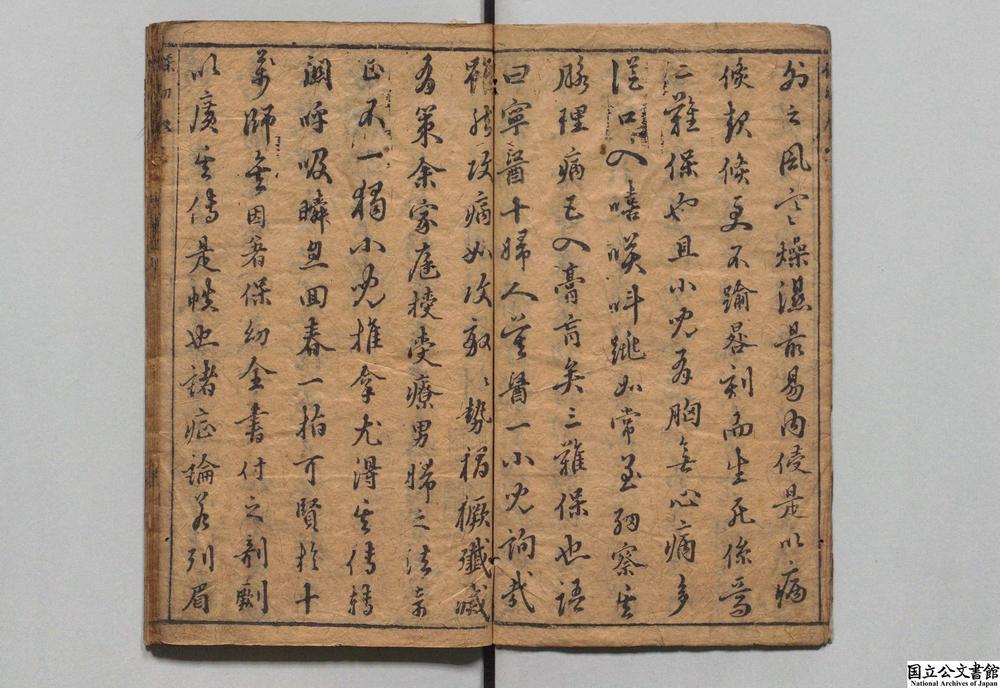 外之風寒燥濕最易內侵是以病
倏款倏更不踰晷刻而生死係焉
二難保也且小兒有胸無心病多
從口入嘻咲呌跳如常至細察其
脉理病已入膏肓矣三難保也語
曰寧醫十婦人莫醫一小兒詢哉
雖然攻病如攻敵〻勢
有策余家庭授受療男婦之法
正不一獨小兒推拿尤得其傳轉
關呼吸瞬息回春一指可賢於十
萬師矣因著保幼全書付之剞劂
以廣其傳是帙也諸症論若列眉
国立公文書館
National Archives of Japan